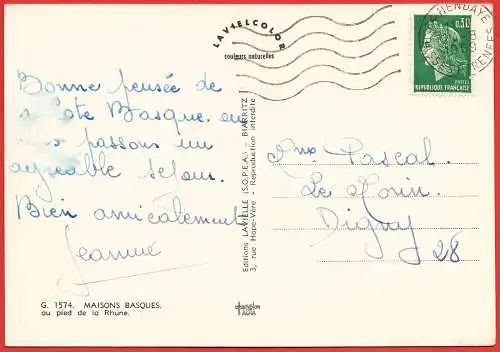 Bonne pensée de
Côte Basque. ou
passons un
agréable séjour.
Bien amicalement
Jeannine
G. 1574. MAISONS BASQUES.
au pied de la Rhune.
LAVIELCOLOR
couleurs naturelles
Editions LAVIELLE (S.O.P.E.A.) - BIARRITZ
3, rue Hope-Vère - Reproduction interdite
HENDAYE
0,30
POSTES
REPUBLIQUE FRANÇAISE
Mme Pascal
Le
Digny
28